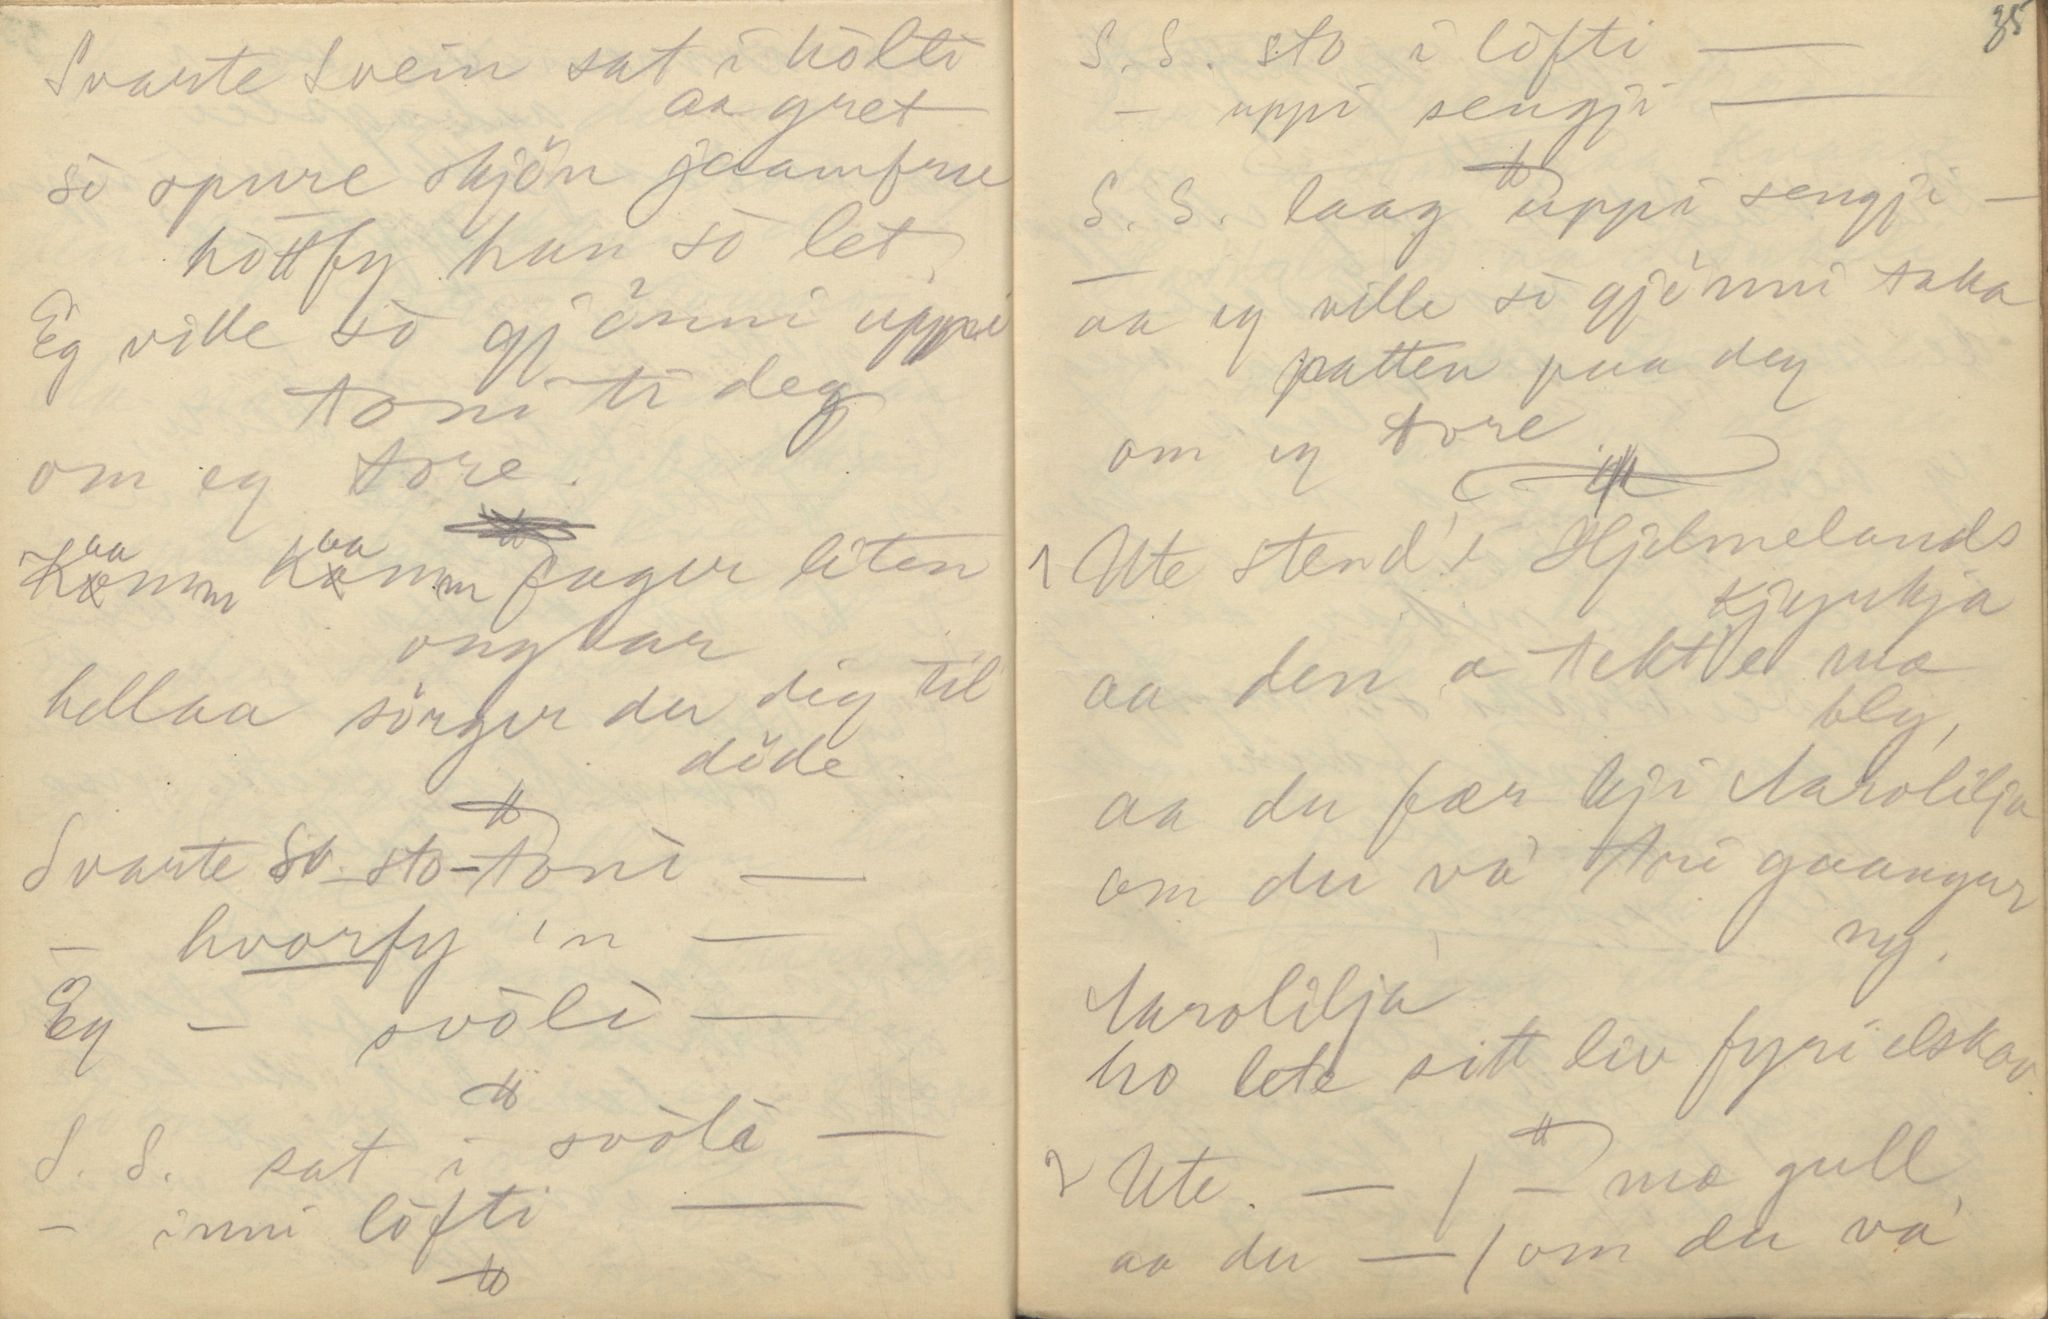 Svarte Svein sat i hölti
aa gret
so spure skjön jaamfrue
hottfy han so let.
Eg ville so gjönni uppi
toni ti deg
om eg tore.
Kaamm Kaamm fager liten
ongkar
hellaa sörger du dig til
döde.
Svarte Sv. sto - toni —
— hvorfy 'n —
Eg — svöli —
S. S. sat i svöli —
— inni löfti —
35
S. S. sto i löfti —
— uppi sengji —
S. S. laag uppi sengji —
—
aa eg ville so gjönni taka
patten paa deg
om eg tore.
1 Ute stend 'i Hjelmelands
kjyrkja
aa den a tekt'e mæ
bly,
aa du fær kji Narolilja
om du va' tri gaangur
ny.
Narolilja
ho lete sitt liv fyri elskov.
2 Ute. — / — mæ gull,
aa du — / om du va'